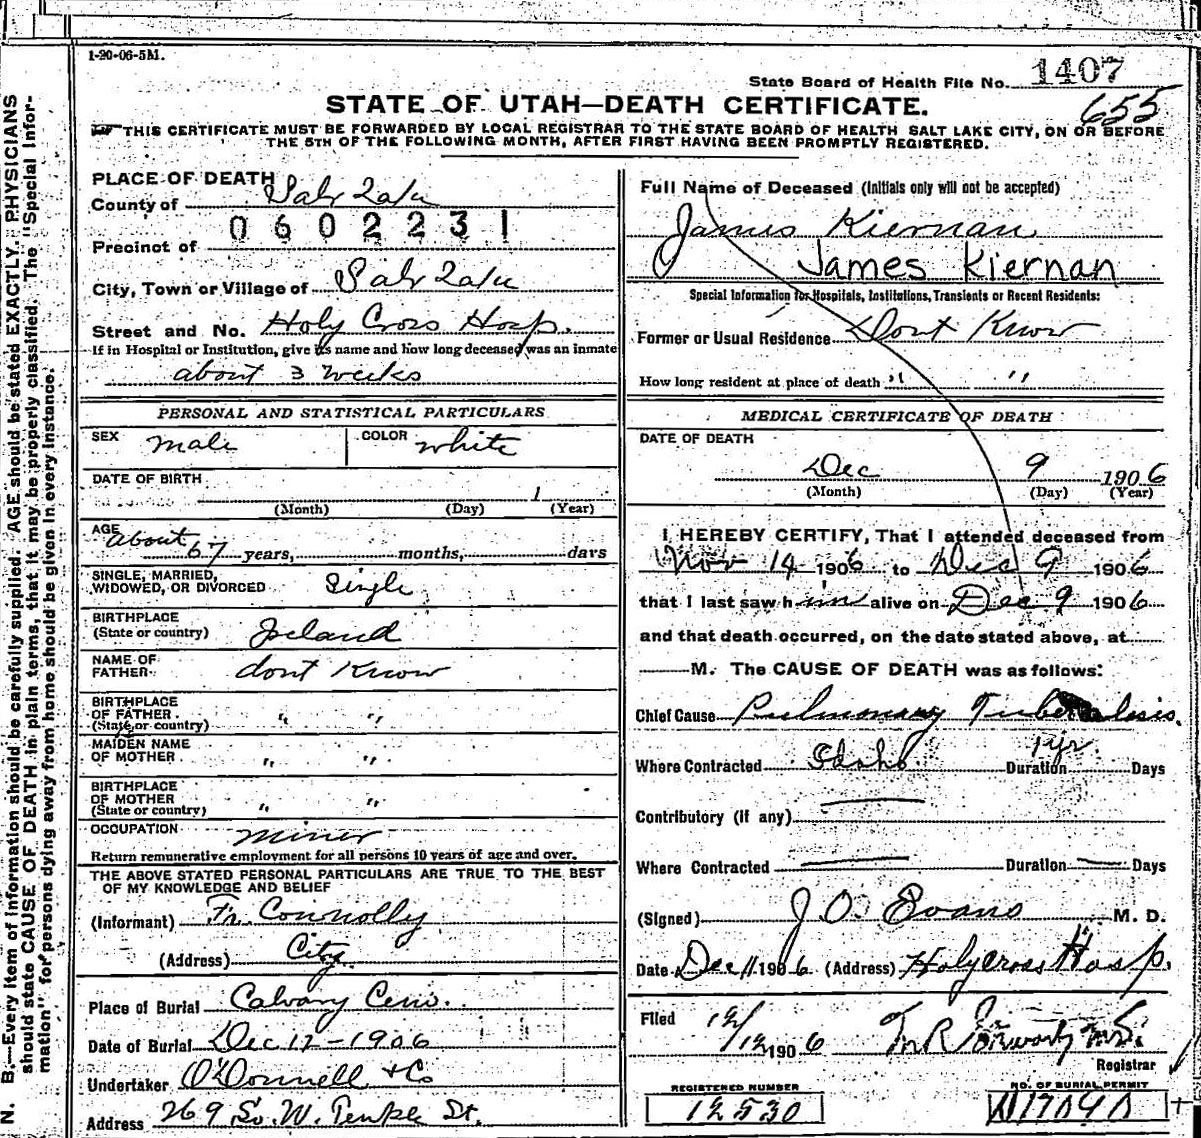 1-20-06-5M.
State Board of Health File No. 1407
655
STATE OF UTAH—DEATH CERTIFICATE.
THIS CERTIFICATE MUST BE FORWARDED BY LOCAL REGISTRAR TO THE STATE BOARD OF HEALTH SALT LAKE CITY, ON OR BEFORE
THE 5TH OF THE FOLLOWING MONTH, AFTER FIRST HAVING BEEN PROMPTLY REGISTERED.
N. B.—Every item of information should be carefully supplied. AGE should be stated EXACTLY. PHYSICIANS
should state CAUSE OF DEATH in plain terms, that it may be properly classified. The "Special Infor-
mation" for persons dying away from home should be given in every instance.
PLACE OF DEATH
County of Salt Lake
0602231
Precinct of
City, Town or Village of Salt Lake
Street and No. Holy Cross Hosp.
If in Hospital or Institution, give its name and how long deceased was an inmate
about 3 weeks
PERSONAL AND STATISTICAL PARTICULARS
SEX male COLOR white
DATE OF BIRTH 1
(Month) (Day) (Year)
AGE about 67 years, months, days
SINGLE, MARRIED,
WIDOWED, OR DIVORCED Single
BIRTHPLACE
(State or country) Ireland
NAME OF
FATHER dont Know
BIRTHPLACE
OF FATHER
(State or country) " "
MAIDEN NAME
OF MOTHER " "
BIRTHPLACE
OF MOTHER
(State or country) " "
OCCUPATION miner
Return remunerative employment for all persons 10 years of age and over.
THE ABOVE STATED PERSONAL PARTICULARS ARE TRUE TO THE BEST
OF MY KNOWLEDGE AND BELIEF
(Informant) Fr. Connolly
(Address) City
Place of Burial Calvary Cem.
Date of Burial Dec 12-1906
Undertaker O'Donnell & Co
Address 269 So. W. Temple St.
Full Name of Deceased (Initials only will not be accepted)
James Kiernan
James Kiernan
Special Information for Hospitals, Institutions, Transients or Recent Residents:
Former or Usual Residence Dont Know
How long resident at place of death " "
MEDICAL CERTIFICATE OF DEATH
DATE OF DEATH
Dec 9 1906
(Month) (Day) (Year)
I HEREBY CERTIFY, That I attended deceased from
Nov 14 1906 to Dec 9 1906
that I last saw him alive on Dec 9 1906
and that death occurred, on the date stated above, at
M. The CAUSE OF DEATH was as follows:
Chief Cause Pulmonary Tuberculosis.
Where Contracted Idaho Duration 1 yr. Days
Contributory (if any)
Where Contracted Duration Days
(Signed) J. O. Evans M. D.
Date Dec 11 1906 (Address) Holy Cross Hosp.
Filed 12/12 1906
Registrar
REGISTERED NUMBER
12530
NO. OF BURIAL PERMIT